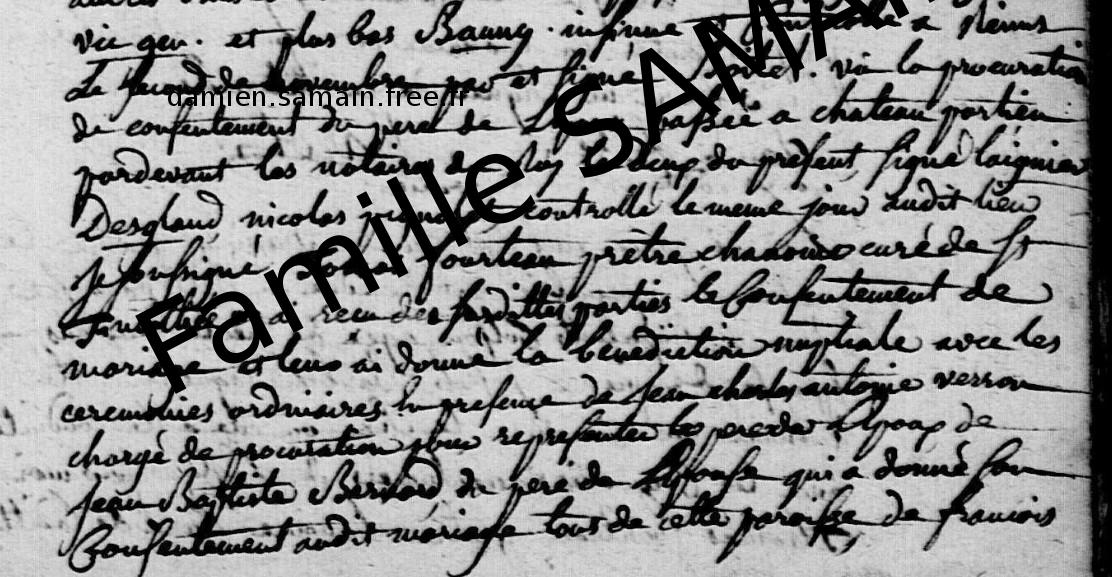 vic gen. et plus bas Bauny. insinué et a Reims
Le second de novembre et signé . vu la procuration
damien.samain.free.fr
de consentement du pere de passée a chateau portien
pardevant les notaires de le deux du present, signé laignier
Desgland nicolas controllé le meme jour audit lieu
je soussigné fourteau prêtre chanoine curé de St
ai recu des susdittes parties le Consentement de
mariage et leur ai donné la benediction nuptiale avec les
ceremonies ordinaires. en presence de Jean charles antoine verron
chargé de procuration pour representer les pere de l'Epoux de
Jean Baptiste Bernard du pere de L'Epouse qui a donné son
Consentement audit mariage tous de cette paroisse, de francois
Famille SAMAI